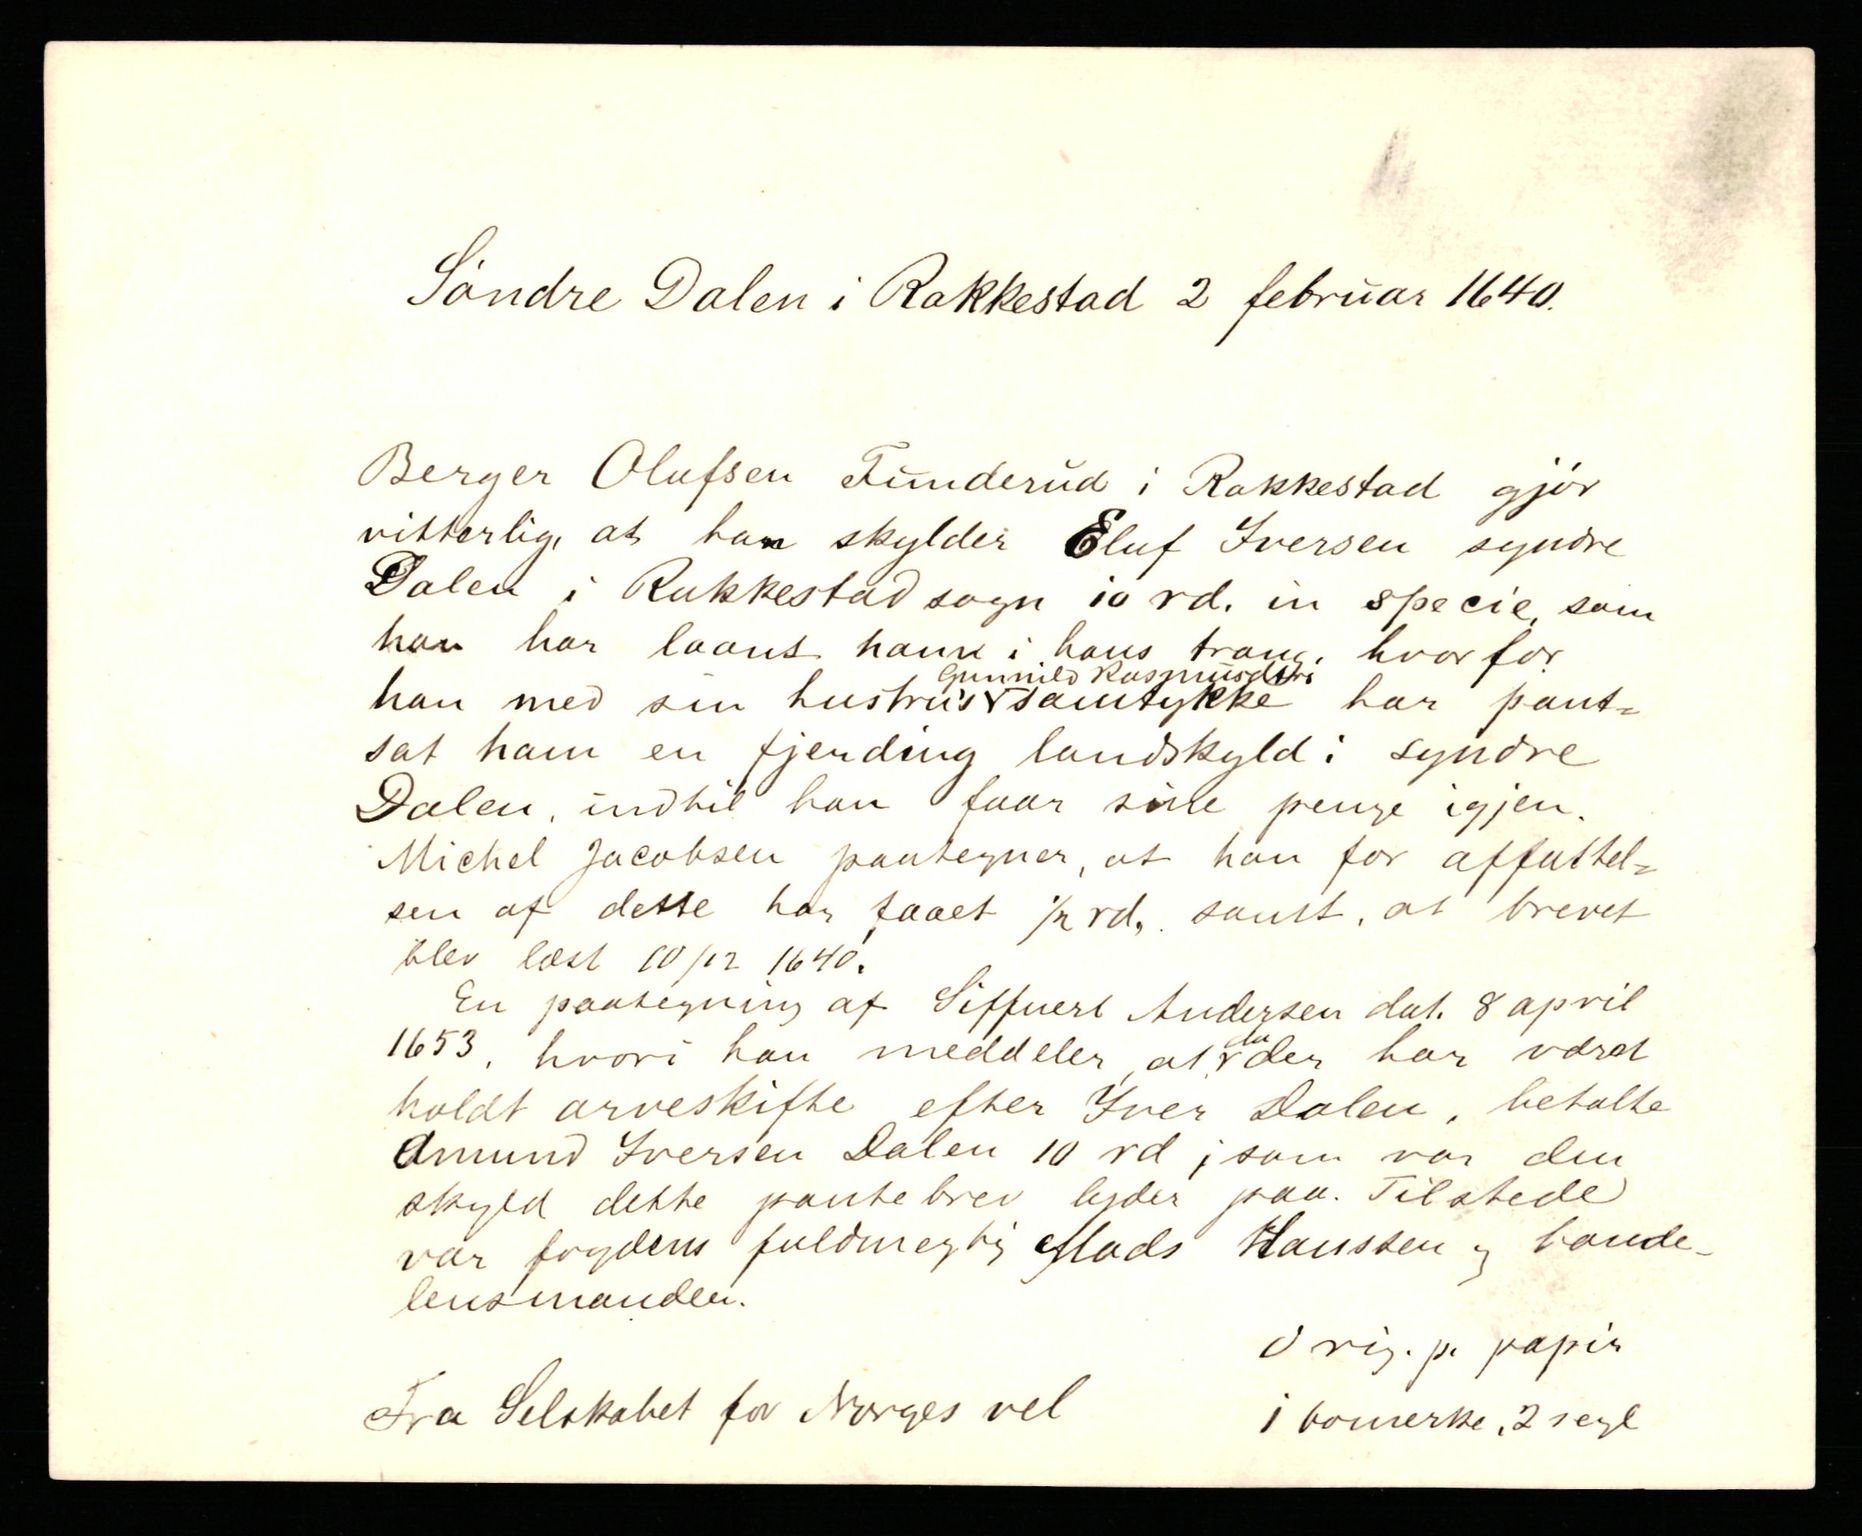 Söndre Dalen i Rakkestad 2 februar 1640.
Berger Olufsen Tunderud i Rakkestad gjör
vitterlig, at han skylder Eluf Iversen syndre
Dalen i Rakkestad sogn 10 rd. in specie, som
han har laant ham i hans trang, hvorfor
Gunnild Rasmusdtrs
han med sin hustrus samtykke har pant=
sat ham en fjerding landskyld i syndre
Dalen, indtil han faar sine penge igjen.
Michel Jacobsen paategner, at han for affattel=
sen af dette har faaet 1/2 rd. samt, at brevet
blev læst 10/12 1640.
En paategning af Siffuert Andersen dat. 8 april
1653, hvori han meddeler, at da der har været
holdt arveskifte efter Iver Dalen, betalte
Amund Iversen Dalen 10 rd, som var den
skyld dette pantebrev lyder paa. Tilstede
var fogdens fuldmegtig Mads Hanssen og bonde-
lensmanden.
Orig. p. papir
Fra Selskabet for Norges vel
1 bomerke, 2 segl